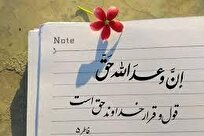 Note
إنّ وعد الله حقّ
قول و قرار خداوند حق است
فاطر ۵